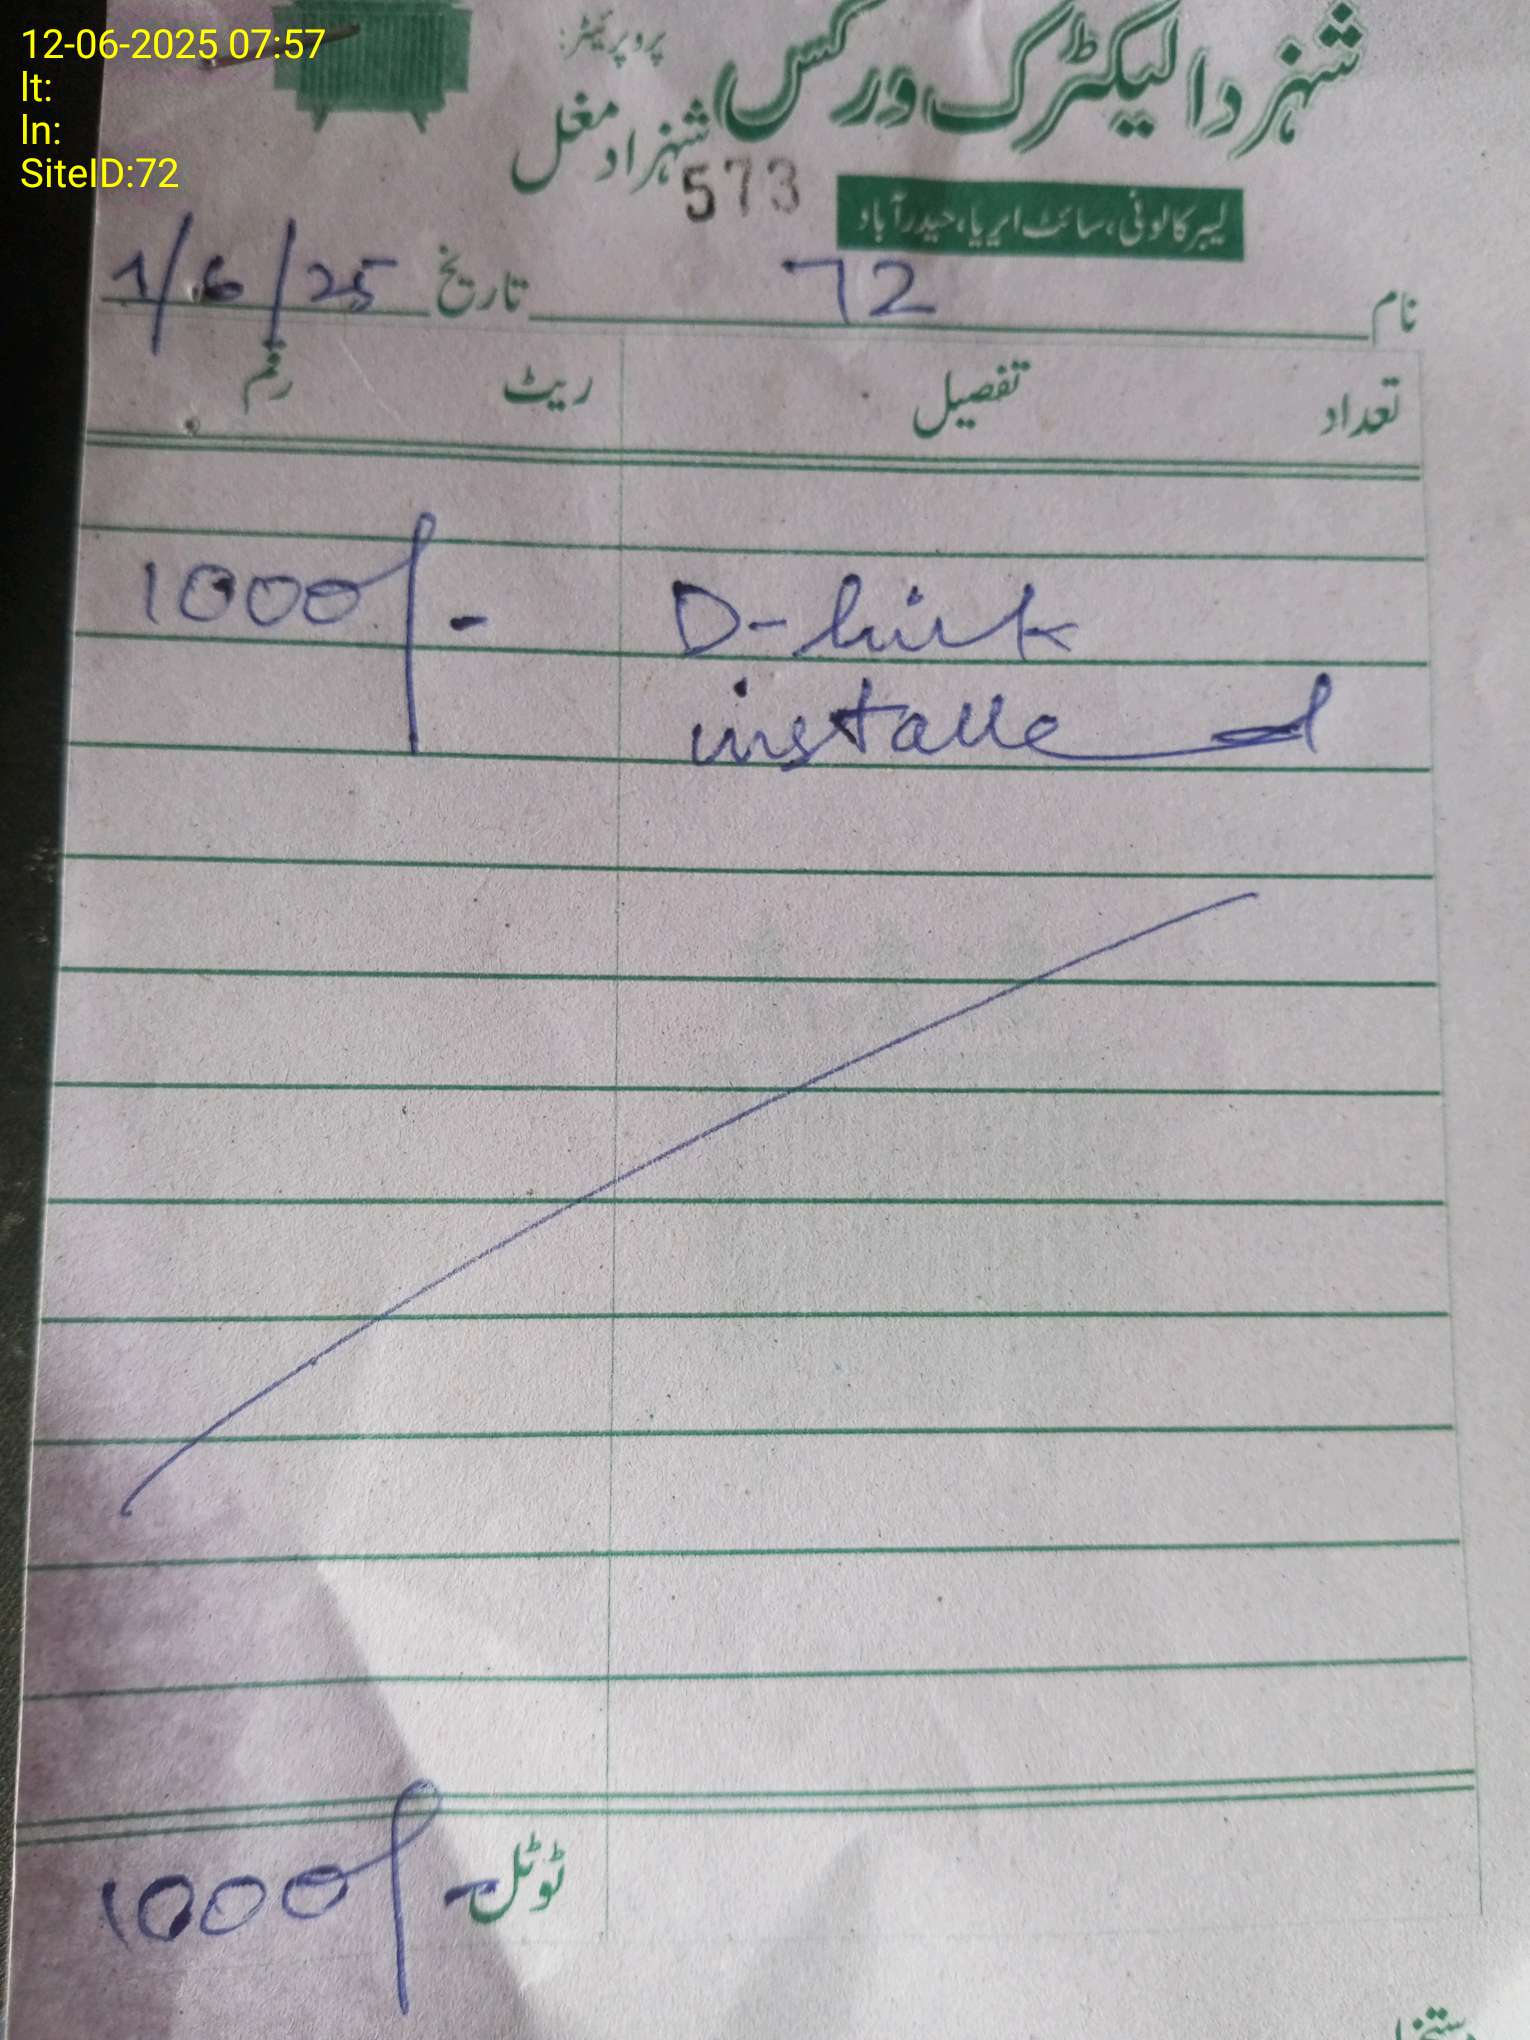 12-06-2025 07:57
lt:
ln:
SiteID:72
شہزاد الیکٹرک ورکس
پروپرائیٹر:
شہزاد مغل
573
لیبر کالونی، سائٹ ایریا، حیدرآباد
نام 72 تاریخ 1/6/25
تعداد تفصیل ریٹ رقم
D-link 1000/-
installed
ٹوٹل 1000/-